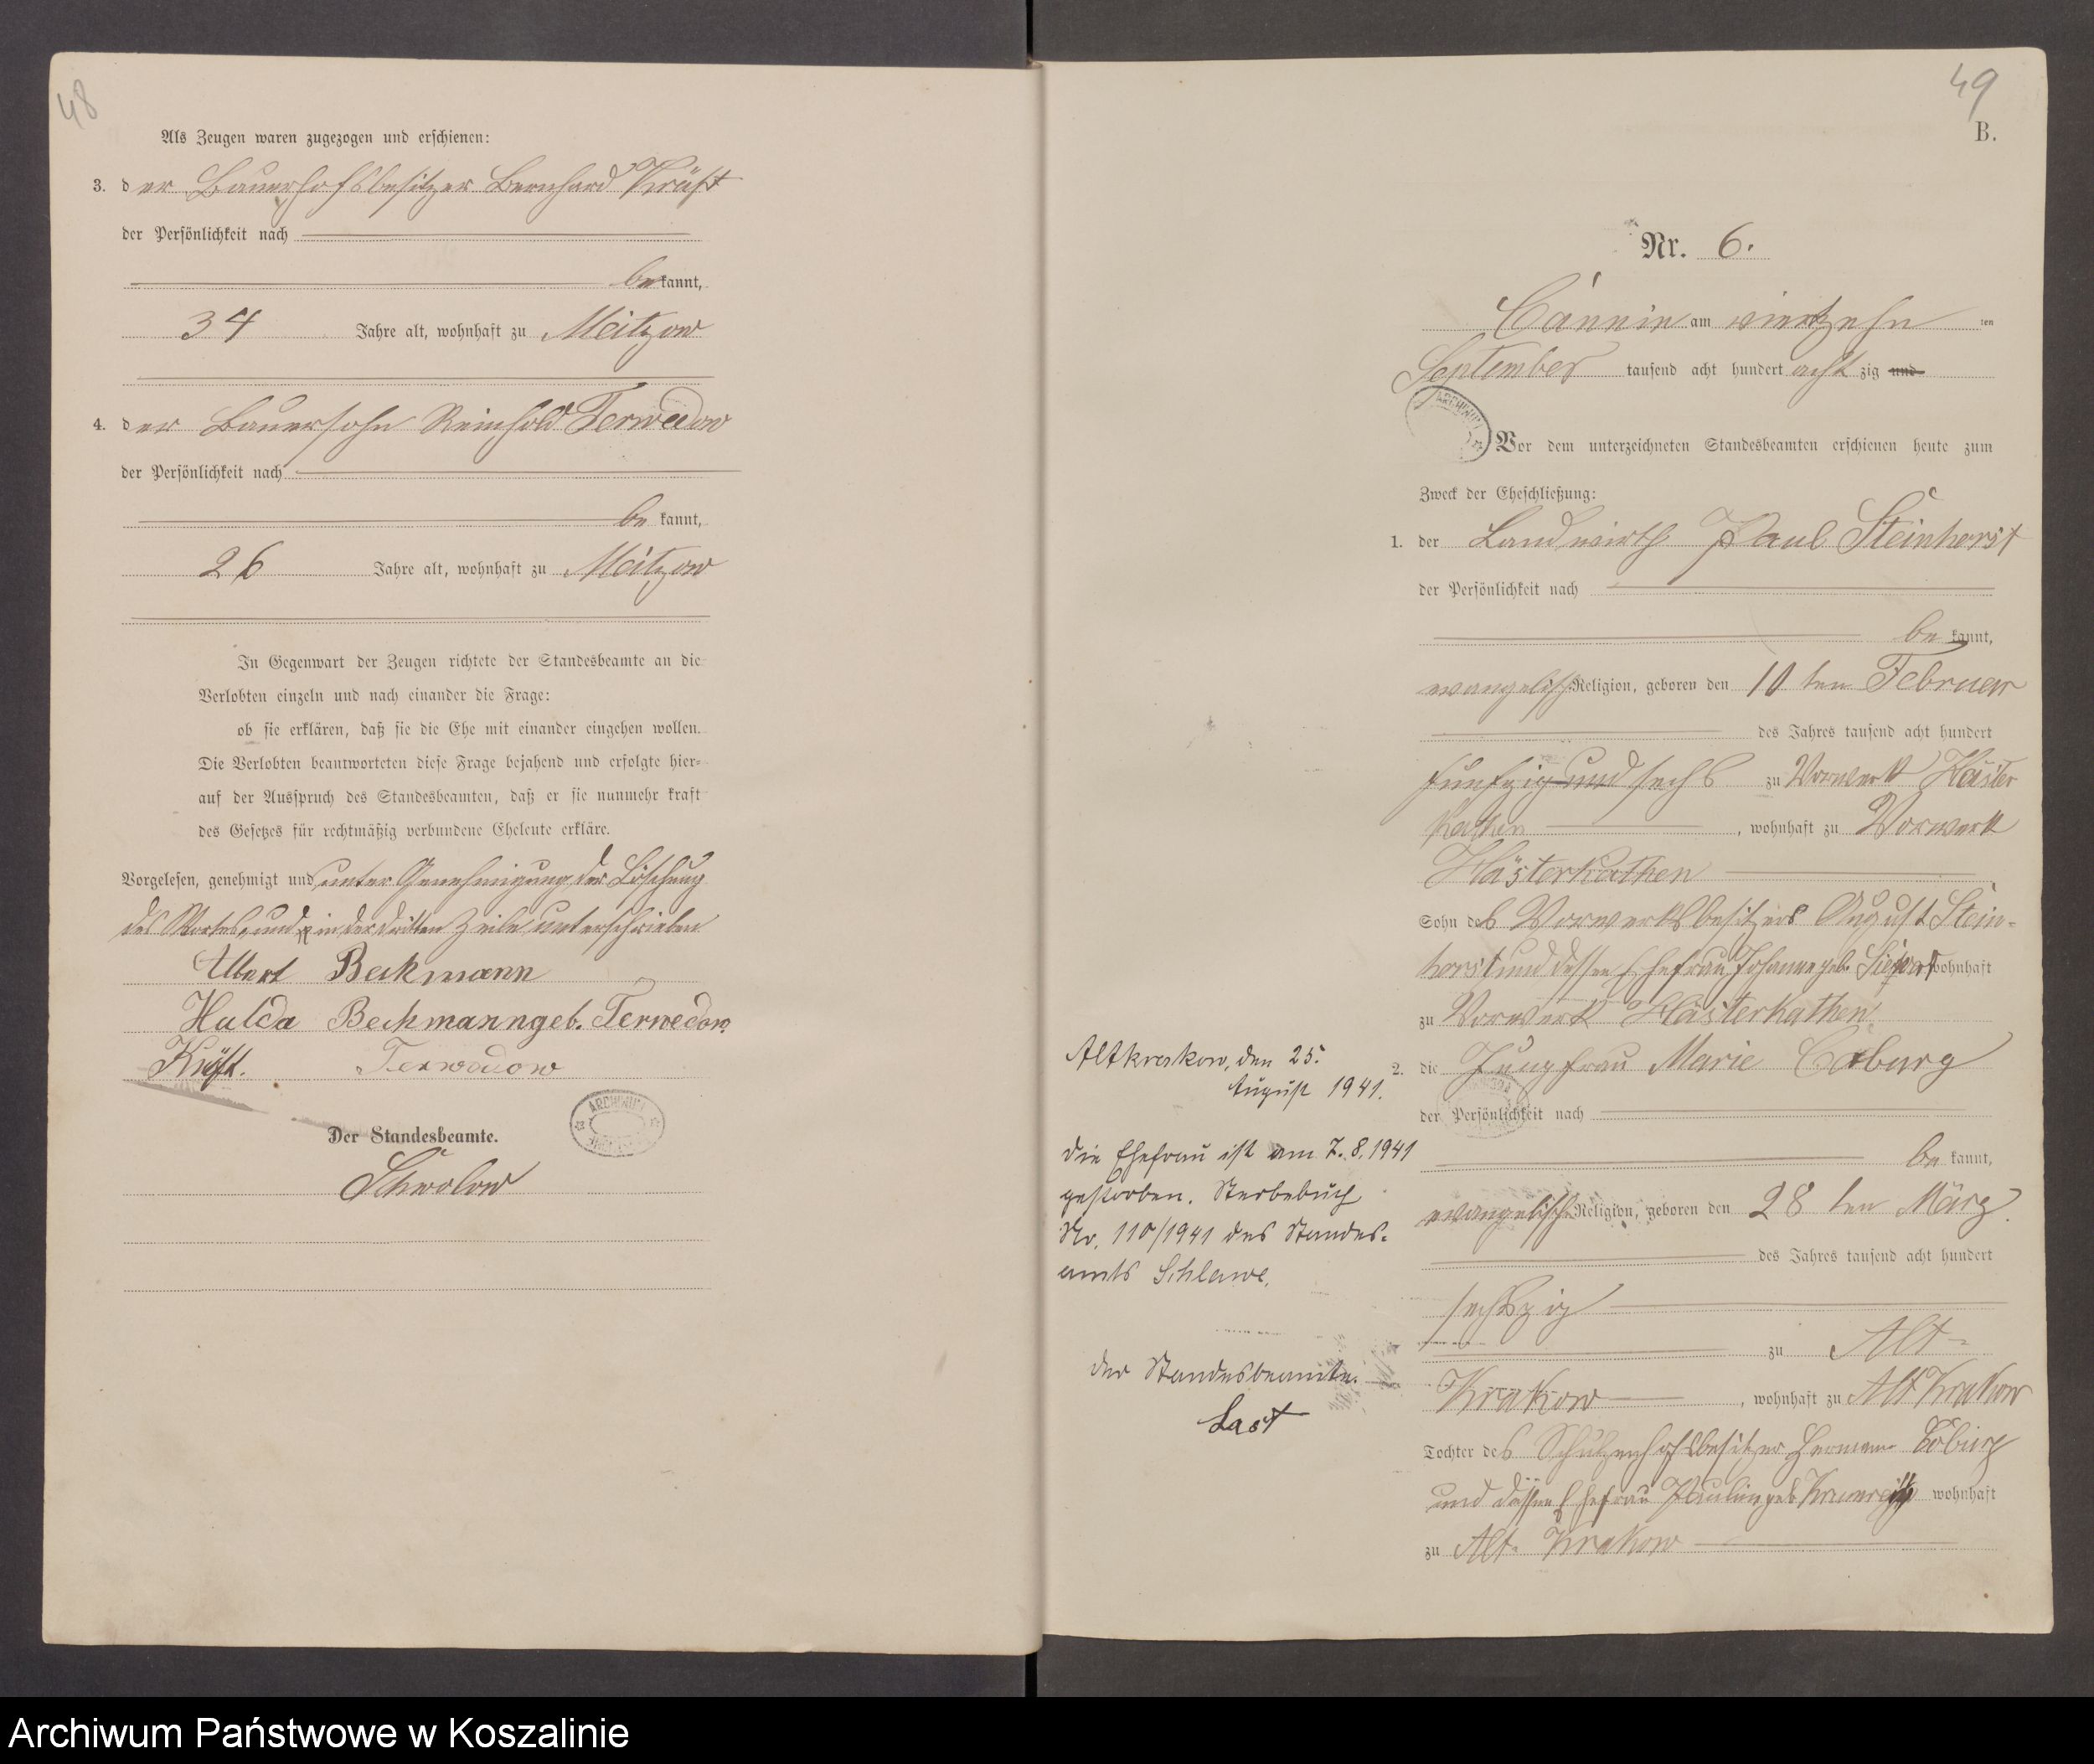 48
Als Zeugen waren zugezogen und erschienen:
3. der Bauerhofsbesitzer Bernhard Kräft
der Persönlichkeit nach
bekannt,
34 Jahre alt, wohnhaft zu Meitzow
4. der Bauersohn Reinhold Terwedow
der Persönlichkeit nach
be kannt,
26 Jahre alt, wohnhaft zu Meitzow
In Gegenwart der Zeugen richtete der Standesbeamte an die
Verlobten einzeln und nach einander die Frage:
ob sie erklären, daß sie die Ehe mit einander eingehen wollen.
Die Verlobten beantworteten diese Frage bejahend und erfolgte hier-
auf der Ausspruch des Standesbeamten, daß er sie nunmehr kraft
des Gesetzes für rechtmäßig verbundene Eheleute erkläre.
Vorgelesen, genehmigt und unter Genehmigung der Löschung
des Wortes „und" in der dritten Zeile unterschrieben
Albert Beckmann
Hulda Beckmann geb. Terwedow
Kräft. Terwedow
Der Standesbeamte.
ARCHIWUM
Schwolow
49
B.
Nr. 6.
Cannin am vierzehn ten
September tausend acht hundert acht zig und
ARCHIWUM
Vor dem unterzeichneten Standesbeamten erschienen heute zum
Zweck der Eheschließung:
1. der Landwirth Paul Steinhorst
der Persönlichkeit nach
be kannt,
evangelischer Religion, geboren den 10 ten Februar
des Jahres tausend acht hundert
fünfzig und sechs zu Vorwerk Häster
kathen, wohnhaft zu Vorwerk
Hästerkathen
Sohn des Vorwerksbesitzers August Stein-
horst und dessen Ehefrau Johanne geb. wohnhaft
zu Vorwerk Hästerkathen
2. die Jungfrau Marie Coburg
der Persönlichkeit nach
be kannt,
evangelischer Religion, geboren den 28 ten März
des Jahres tausend acht hundert
sechszig
zu Alt-
Krakow, wohnhaft zu Alt Krakow
Tochter des Schulzenhofsbesitzer Hermann Coburg
und dessen Ehefrau Pauline geb. wohnhaft
zu Alt-Krakow
Altkrakow, den 25.
August 1941.
Die Ehefrau ist am 7.8.1941
gestorben. Sterbebuch
Nr. 110/1941 des Standes-
amts Schlawe.
Der Standesbeamte.
Last
Archiwum Państwowe w Koszalinie